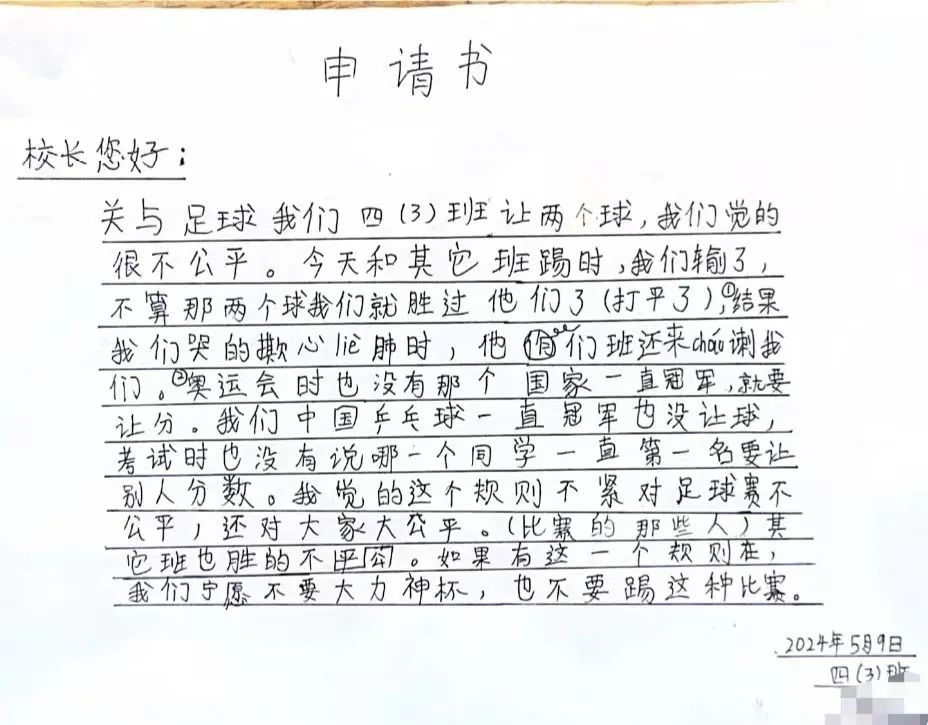 申请书
校长您好：
关与足球我们四(3)班让两个球，我们觉的
很不公平。今天和其它班踢时，我们输了，
不算那两个球我们就胜过他们了(打平了)，①结果
我们哭的撕心liè肺时，他们班还来cháo讽我
们。②奥运会时也没有那个国家一直冠军，就要
让分。我们中国乒乓球一直冠军也没让球，
考试时也没有说哪一个同学一直第一名要让
别人分数。我觉的这个规则不紧对足球赛不
公平，还对大家大公平。(比赛的那些人)其
它班也胜的不平公。如果有这一个规则在，
我们宁愿不要大力神杯，也不要踢这种比赛。
2024年5月9日
四(3)班